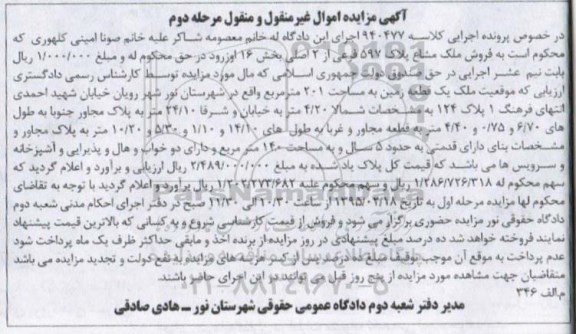 آگهی مزایده اموال غیرمنقول و منقول مرحله دوم
در خصوص پرونده اجرایی کلاسه ۹۴۰۴۷۷ اجرای این دادگاه له خانم معصومه شاکر علیه خانم صونا امینی کلهوری که
محکوم است به فروش ملک مشاع پلاک ۵۹۷ فرعی از ۲ اصلی بخش ۱۶ اوزرود در حق محکوم له و مبلغ ۱/۰۰۰/۰۰۰ ریال
بابت نیم عشر اجرایی در حق صندوق دولت جمهوری اسلامی که مال مورد مزایده توسط کارشناس رسمی دادگستری
ارزیابی که موقعیت ملک یک قطعه زمین به مساحت ۲۰۱ مترمربع واقع در شهرستان نور شهر رویان خیابان شهید احمدی
انتهای فرهنگ ۱ پلاک ۱۲۴ به مشخصات شمالا ۴/۲۰ متر به خیابان و شرقا ۲۴/۱۰ متر به پلاک مجاور جنوبا به طول
های ۶/۷۰ و ۰/۷۵ و ۴/۴۰ متر به قطعه مجاور و غربا به طول های ۱۴/۱۰ و ۱/۱۰ و ۵/۳۰ و ۱۰/۲۰ متر به پلاک مجاور و
مشخصات بنای دارای قدمتی به حدود ۵ سال و به مساحت ۱۴۰ متر مربع و دارای دو خواب و هال و پذیرایی و آشپزخانه
و سرویس ها می باشد که قیمت کل پلاک یاد شده به مبلغ ۲/۴۸۹/۰۰۰/۰۰۰ ریال ارزیابی و برآورد و اعلام گردید که
سهم محکوم له ۱/۲۸۶/۷۲۶/۳۱۸ ریال و سهم محکوم علیه ۱/۲۰۲/۲۷۳/۶۸۲ ریال برآورد و اعلام گردید با توجه به تقاضای
محکوم لها مزایده مرحله اول به تاریخ ۱۳۹۵/۰۴/۱۸ از ساعت ۱۰/۳۰ الی ۱۱/۳۰ صبح در دفتر اجرای احکام مدنی شعبه دوم
دادگاه حقوقی نور مزایده حضوری برگزار می شود و فروش از قیمت کارشناسی شروع و به کسانی که بالاترین قیمت پیشنهاد
نمایند فروخته خواهد شد ده درصد مبلغ پیشنهادی در روز مزایده از برنده اخذ و مابقی حداکثر ظرف یک ماه پرداخت شود
عدم پرداخت به موقع آن موجب توقیف مبلغ ده درصد پس از کسر هزینه های مزایده به نفع دولت و تجدید مزایده می باشد
متقاضیان جهت مشاهده مورد مزایده از پنج روز قبل می توانند در این اجرای حاضر باشند.
م.الف ۳۴۶
مدیر دفتر شعبه دوم دادگاه عمومی حقوقی شهرستان نور – هادی صادقی